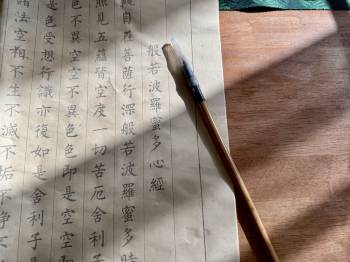 般若波羅蜜多心經
觀自在菩薩行深般若波羅蜜多時
照見五蘊皆空度一切苦厄舍利子
色不異空空不異色色即是空空即
是色受想行識亦復如是舍利子是
諸法空相不生不滅不垢不淨不